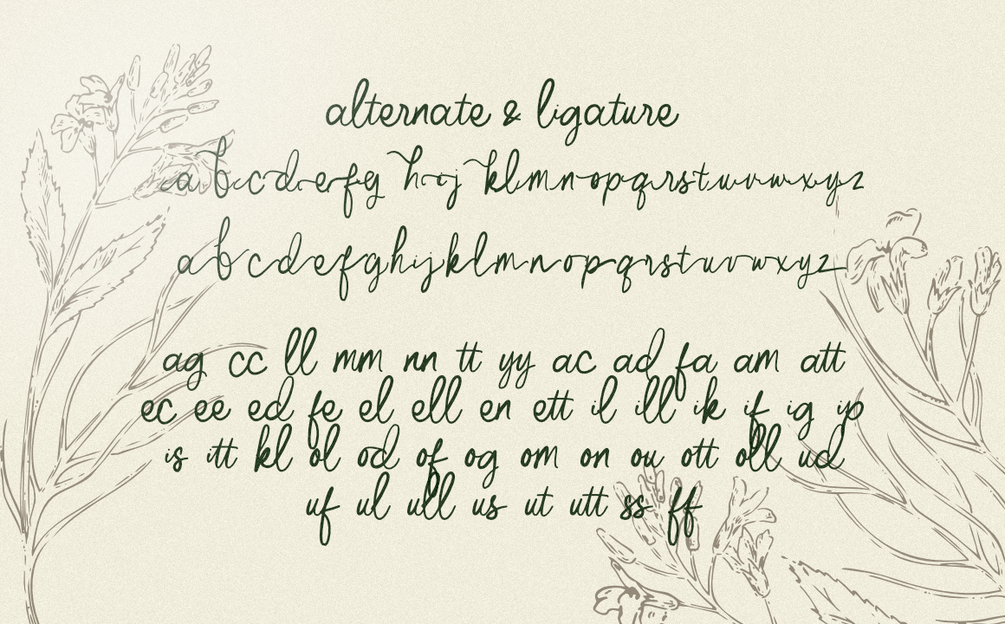 alternate & ligature
a b c d e f g h i j k l m n o p q r s t u v w x y z
a b c d e f g h i j k l m n o p q r s t u v w x y z
ag cc ll mm nn tt yy ac ad fa am att
ec ee ed fe el ell en ett il ill ik if ig ip
is itt kl ol od of og om on ou ott oll ud
uf ul ull us ut utt ss ff